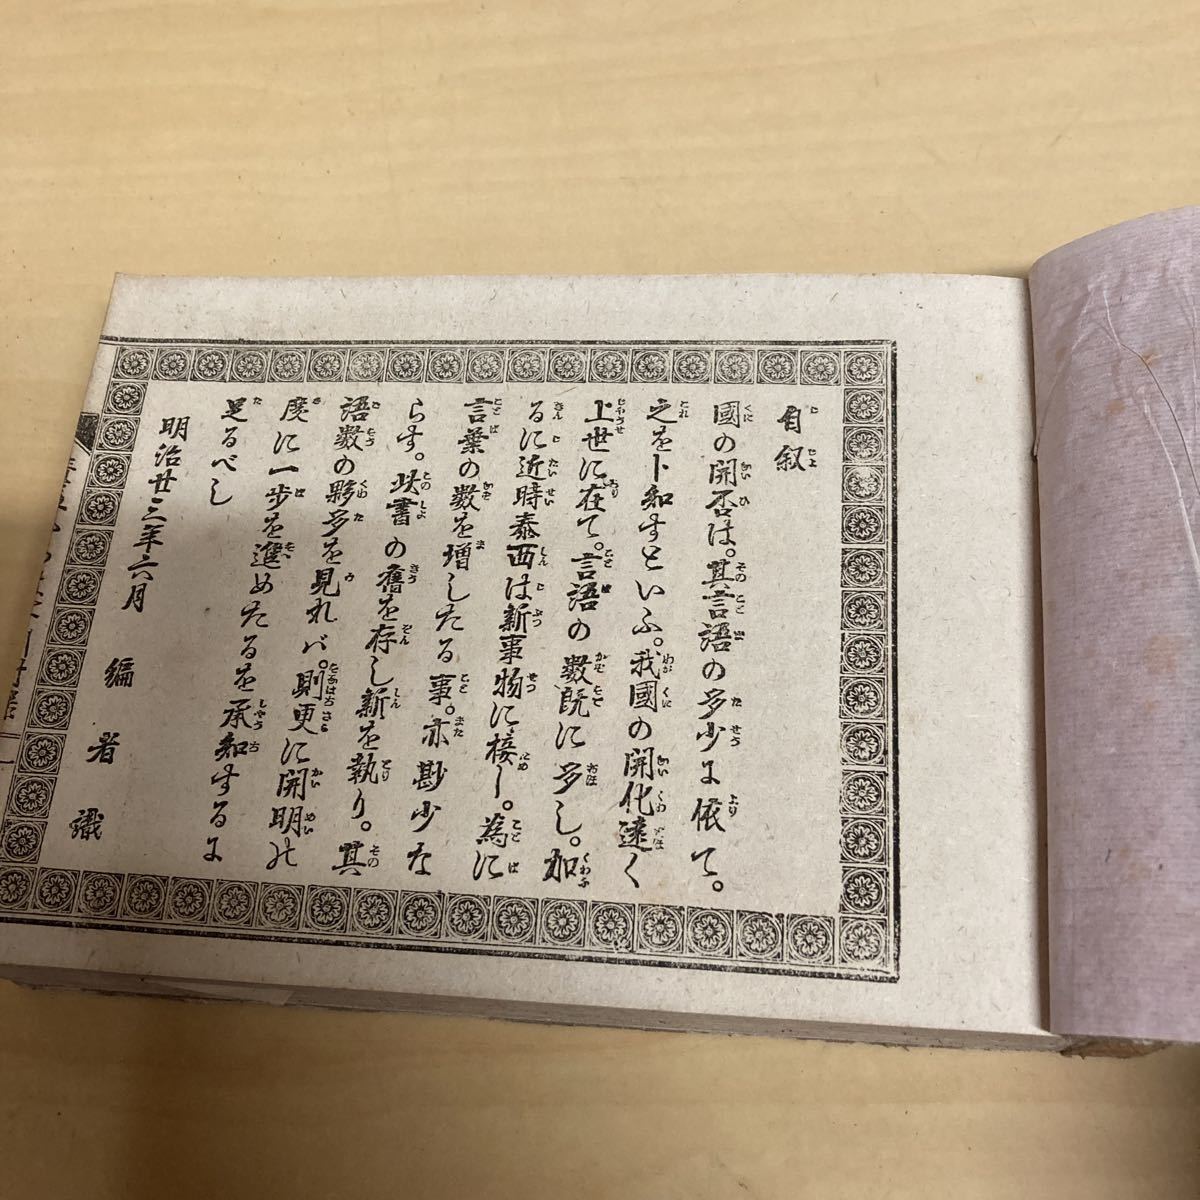 自叙
國の開否は。其言語の多少に依て。
之を卜知すといふ。我國の開化遠く
上世に在て。言語の數既に多し。加
るに近時泰西は新事物に接し。為に
言葉の數を増したる事。亦尠少な
らす。此書の舊を存し新を執り。其
語數の夥多を見れバ。則更に開明の
度に一歩を進めたるを承知するに
足るべし
明治廿三年六月
編者識